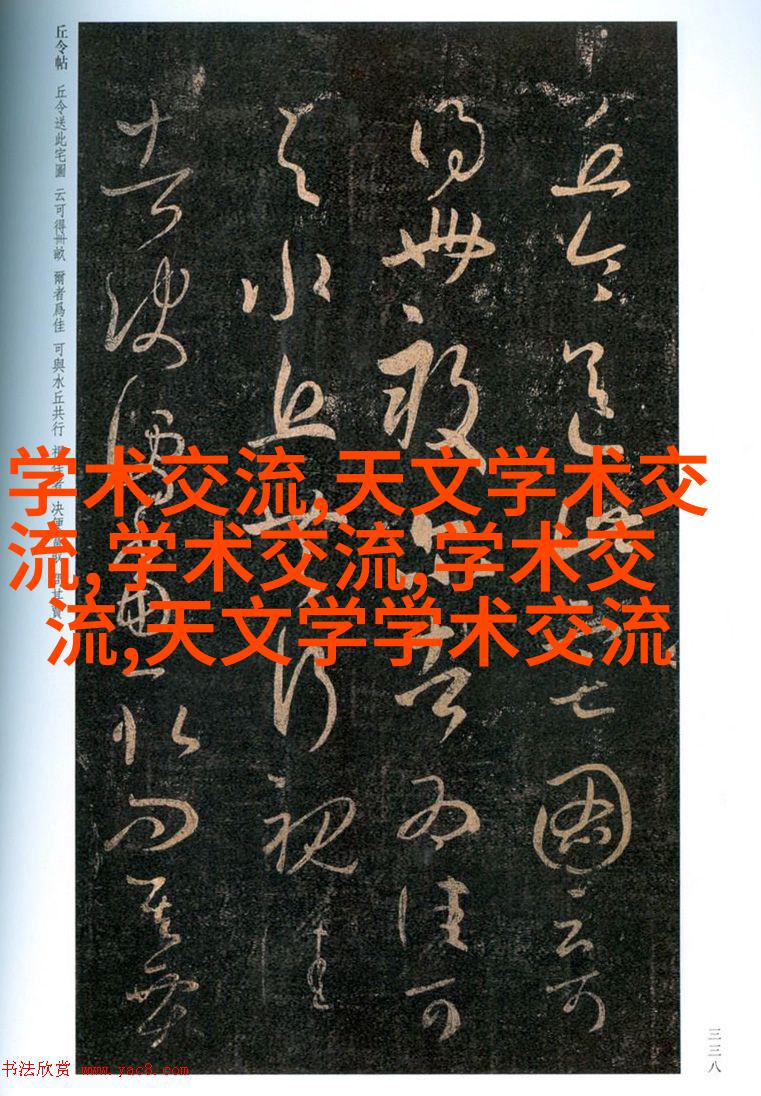 丘令送此宅圖云可
得卌畝爾者為佳可
與水丘共行視佳
者决便當取問其賈
丘令帖 丘令送此宅圖 云可得卌畝 爾者爲佳 可與水丘共行 視佳者 决便當取問其賈
学术交流,天文学术交
流,学术交流,学术交
流,天文学学术交流
三三八
书法欣赏 www.yac8.com